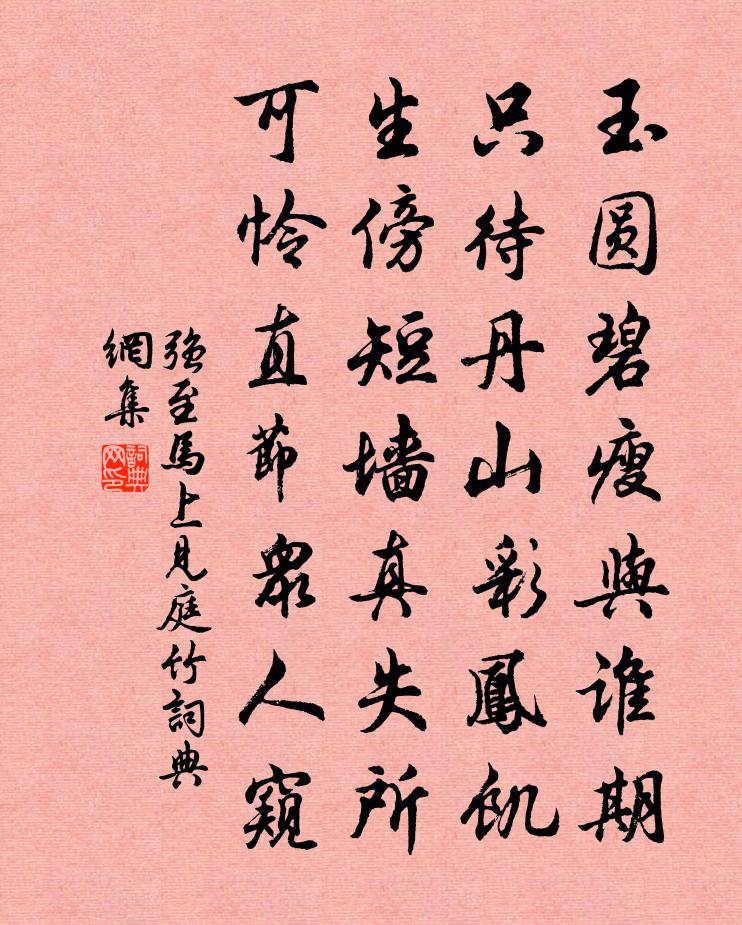 玉圆碧瘦與谁期
只待丹山彩鳳飢
生傍短墙真失所
可怜直節衆人窺
强至馬上見庭竹詞典
網集
詞典
网印